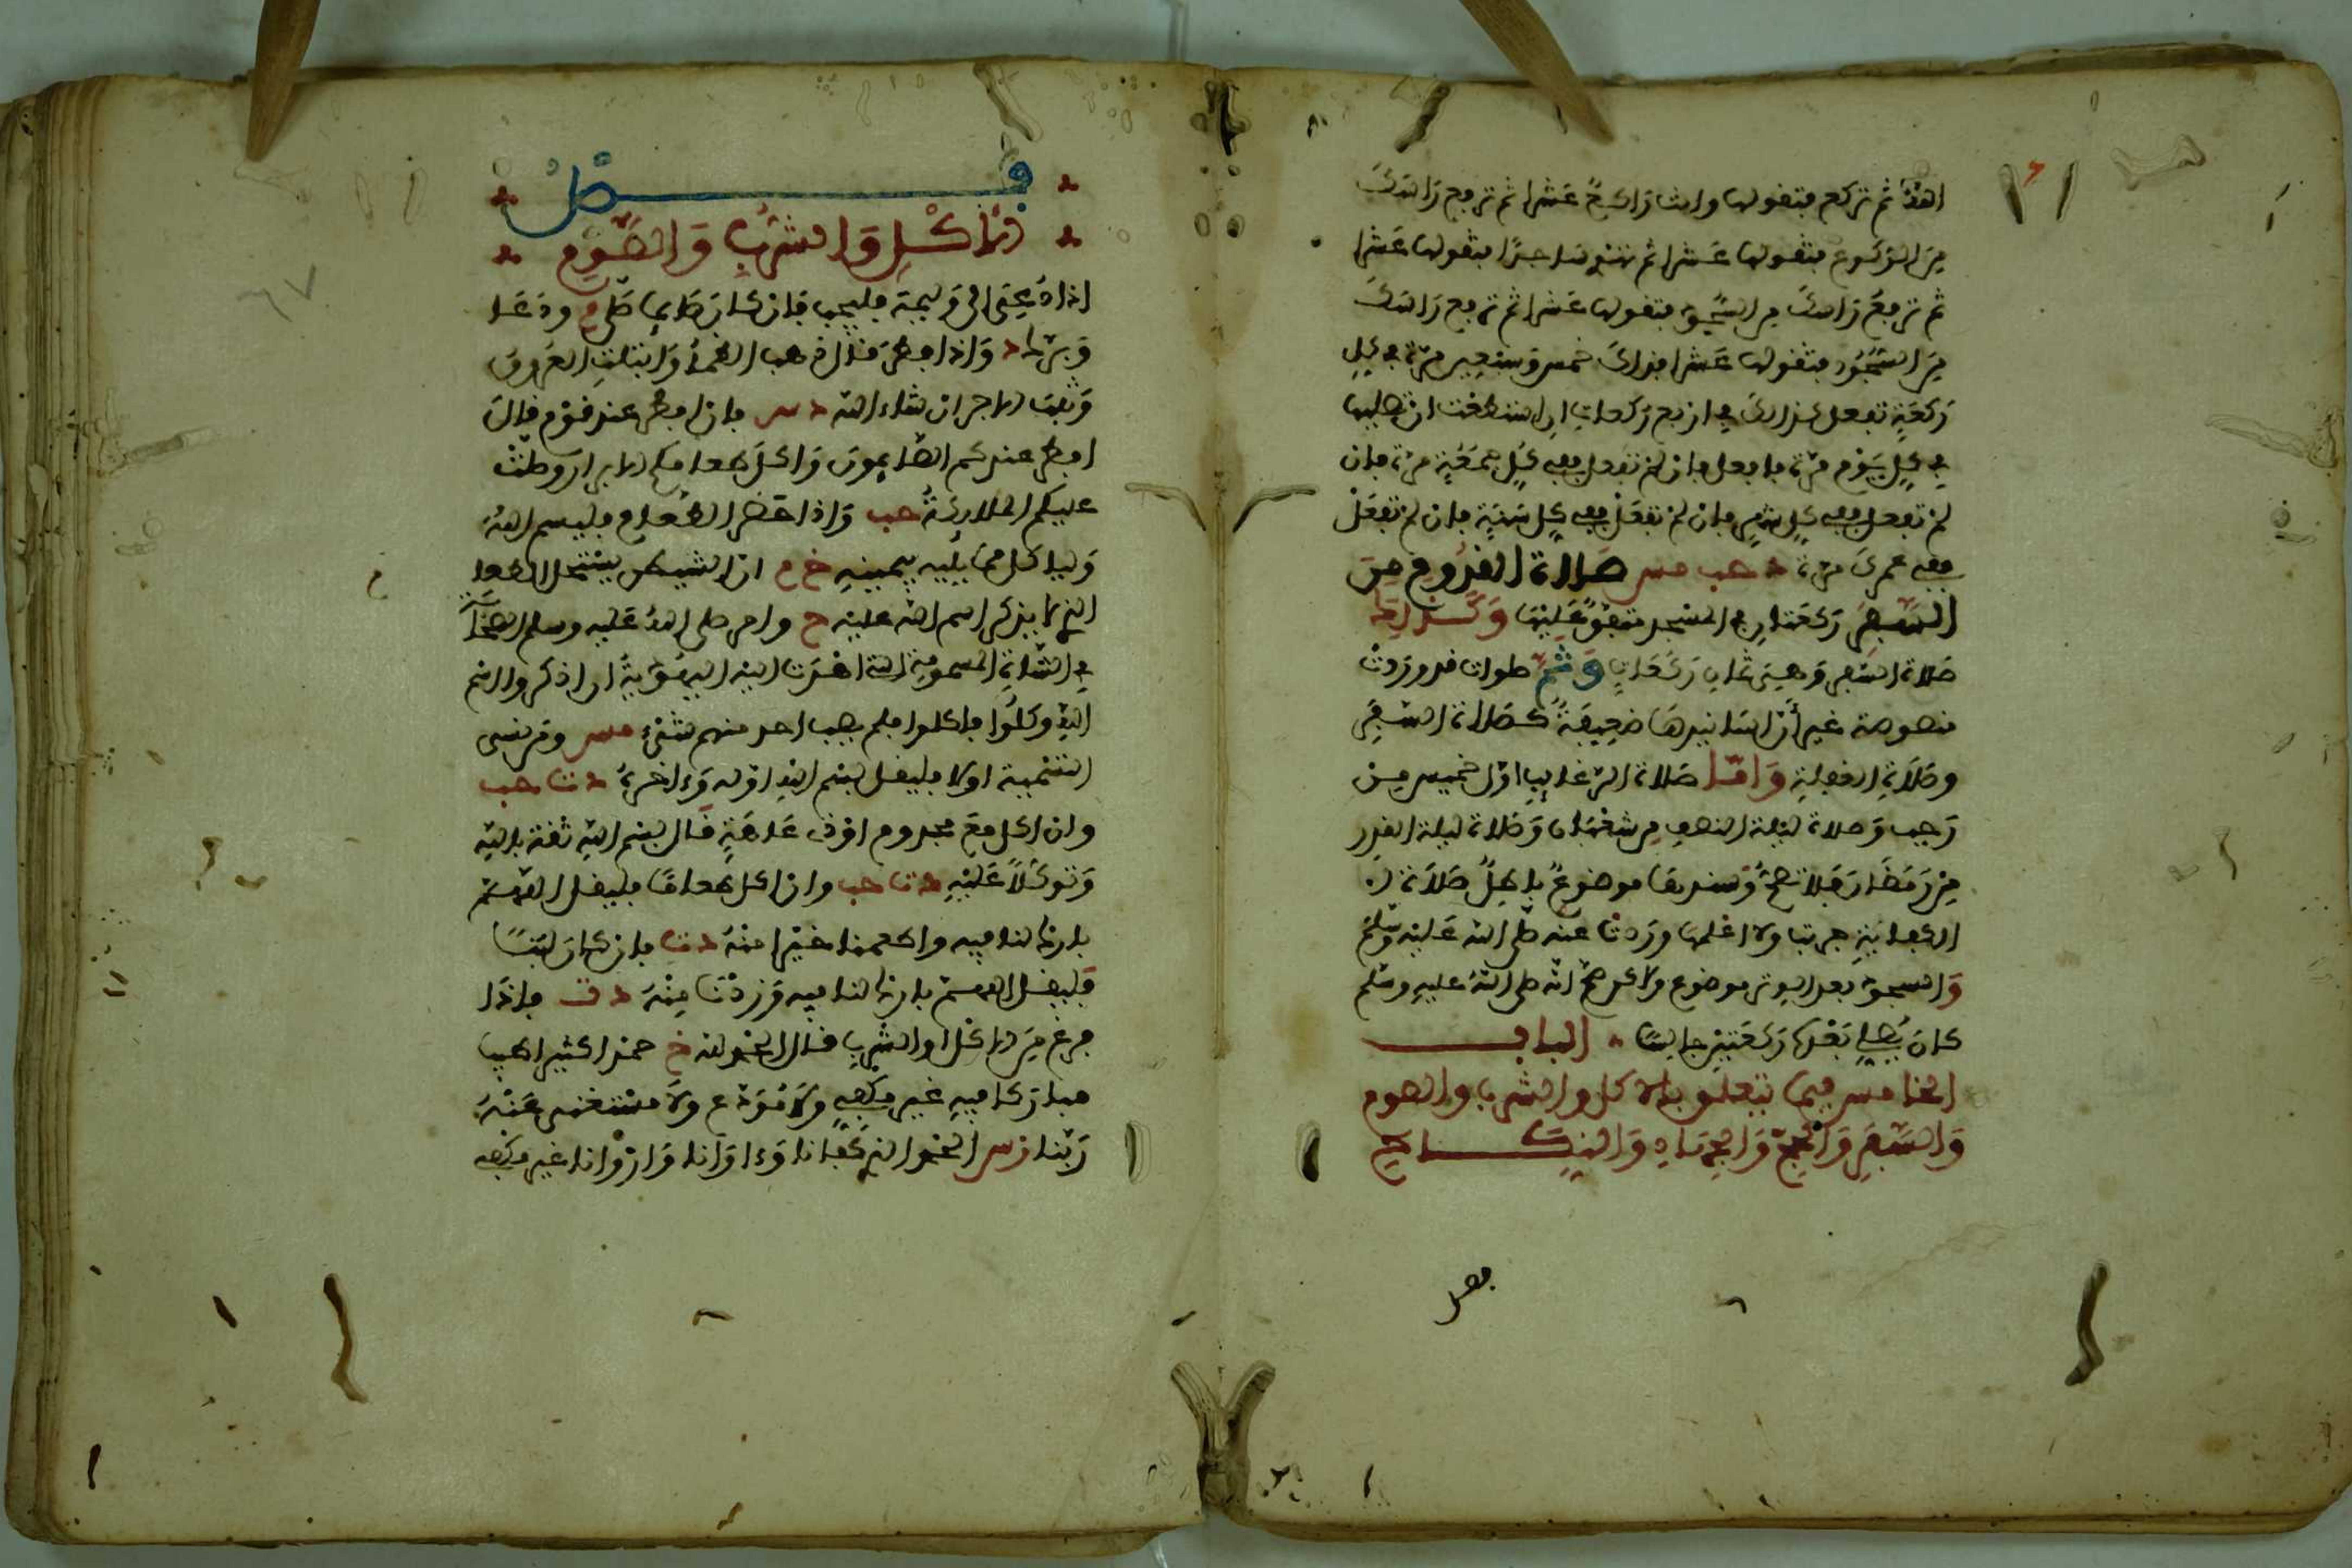 اهدا ثم تركع فتقولها وانت راكع عشرا ثم ترفع راسك
من الركوع فتقولها عشرا ثم تهوي ساجدا فتقولها عشرا
ثم ترفع راسك من السجود فتقولها عشرا ثم ترفع راسك
من السجود فتقولها عشرا فذلك خمس وسبعين مرة في كل
ركعة تفعل ذلك في اربع ركعات ان استطعت ان تصليها
في كل يوم مرة فافعل فان لم تفعل ففي كل جمعة مرة فان
لم تفعل ففي كل شهر فان لم تفعل ففي كل سنة فان لم تفعل
ففي عمرك مرة د حب مس صلاة القدوم من
السفر ركعتان في المسجد متفق عليها وكذلك
صلاة السفر وهي ثمان ركعات وثم صلوات قد وردت
منصوصة غير أن اسانيدها ضعيفة كصلاة السفر
وصلاة الغفلة واما صلاة الرغايب اول خميس من
رجب وصلاة ليلة النصف من شعبان وصلاة ليلة القدر
من رمضان فلا تصح وسندها موضوع باطل صلاة
الكفاية جربت ولا اعلمها وردت عنه صلى الله عليه وسلم
والسجود بعد الوتر موضوع ولاكن صح انه صلى الله عليه وسلم
كان يصلي بعدها ركعتين جالسا الباب
الخامس فيما يتعلق بالاكل والشرب والصوم
والسفر والحج والجهاد والنكاح
فصل
فصل
الاكل والشرب والصوم
اذا دعي الى وليمة فليجب فان كان صايما صلى م ودعا
وبرك د واذا افطر قال ذهب الظمأ وابتلت العروق
وثبت الاجر ان شاء الله د س فان افطر عند قوم قال
افطر عندكم الصايمون واكل طعامكم الابرار وصلت
عليكم الملايكة حب واذا حضر الطعام فليسم الله
ولياكل مما يليه بيمينه خ م ان الشيطن يستحل الطعا
الذي لا يذكر اسم الله عليه م وامر صلى الله عليه وسلم الصحابة
في الشاة المسمومة التي اهدت اليه اليهودية ان اذكروا اسم
الله وكلوا فاكلوا فلم يصب احد منهم شيء مس ومن نسي
التسمية اولا فليقل بسم الله اوله وءاخره د ت حب
وان اكل مع مجذوم او ذي عاهة قال بسم الله ثقة بالله
وتوكلا عليه د ت حب وان اكل طعاما فليقل اللهم
بارك لنا فيه واطعمنا خيرا منه د ت فان كان لبنا
فليقل اللهم بارك لنا فيه وزدنا منه د ت فاذا
فرغ من الاكل او الشرب قال الحمد لله خ حمدا كثيرا طيبا
مباركا فيه غير مكفي ولا مودع ولا مستغنى عنه
ربنا الحمد لله الذي كفانا وءاوانا واروانا غير مكفي